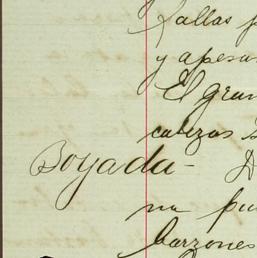 fallas p
y apesa
El gran
cabezas s
Boyada- D
na pu
barzones